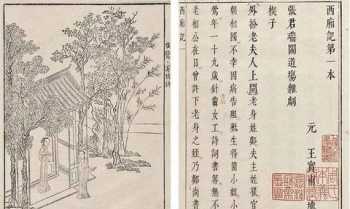 西廂記第一本
張君瑞鬧道塲雜劇
元 王實甫
楔子
外扮老夫人上開老身姓鄭夫主姓崔官
朝相國不幸因病告殂秪生得箇小姐小
鶯年一十九歲針黹女工詩詞書筭無不
老相公在日曾許下老身之姪乃鄭尚書